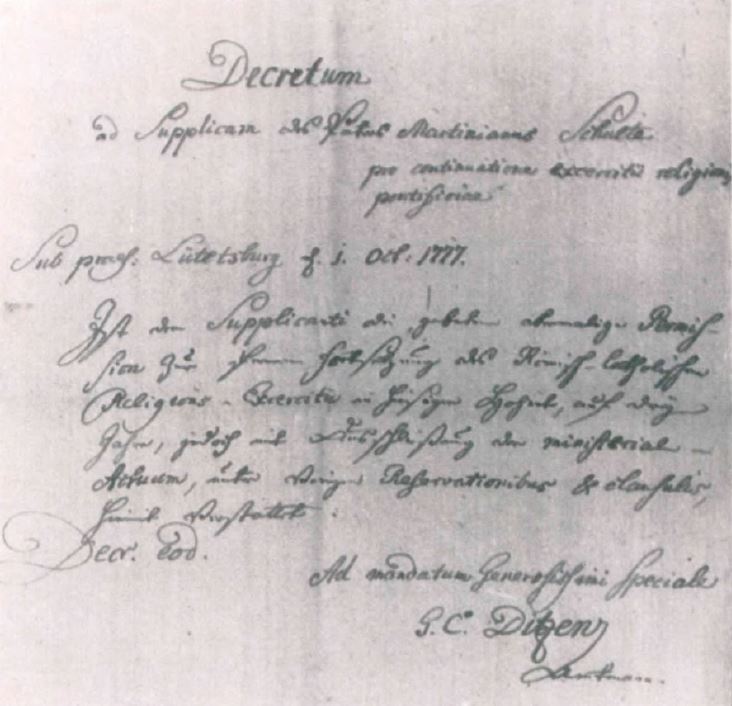 Decretum
ad Supplicam des Patris Martinianus Schulte
pro continuatione exercitii religionis
pontificiae
Sub praes: Lütetsburg d. 1. Oct. 1777.
Ist dem Supplicanti die gebetene abermalige Permis-
sion zur freien Fortsetzung des Römisch-Catholischen
Religions-Exercitii in hiesiger Hoheit, auf drey
Jahre, jedoch mit Ausschließung der ministerial-
Actuum, unter vorigen Reservationibus & clausulis,
hiemit verstattet.
Decr. Eod.
Ad mandatum Generosissimi speciale
G. C. Ditzen
Amtmann.